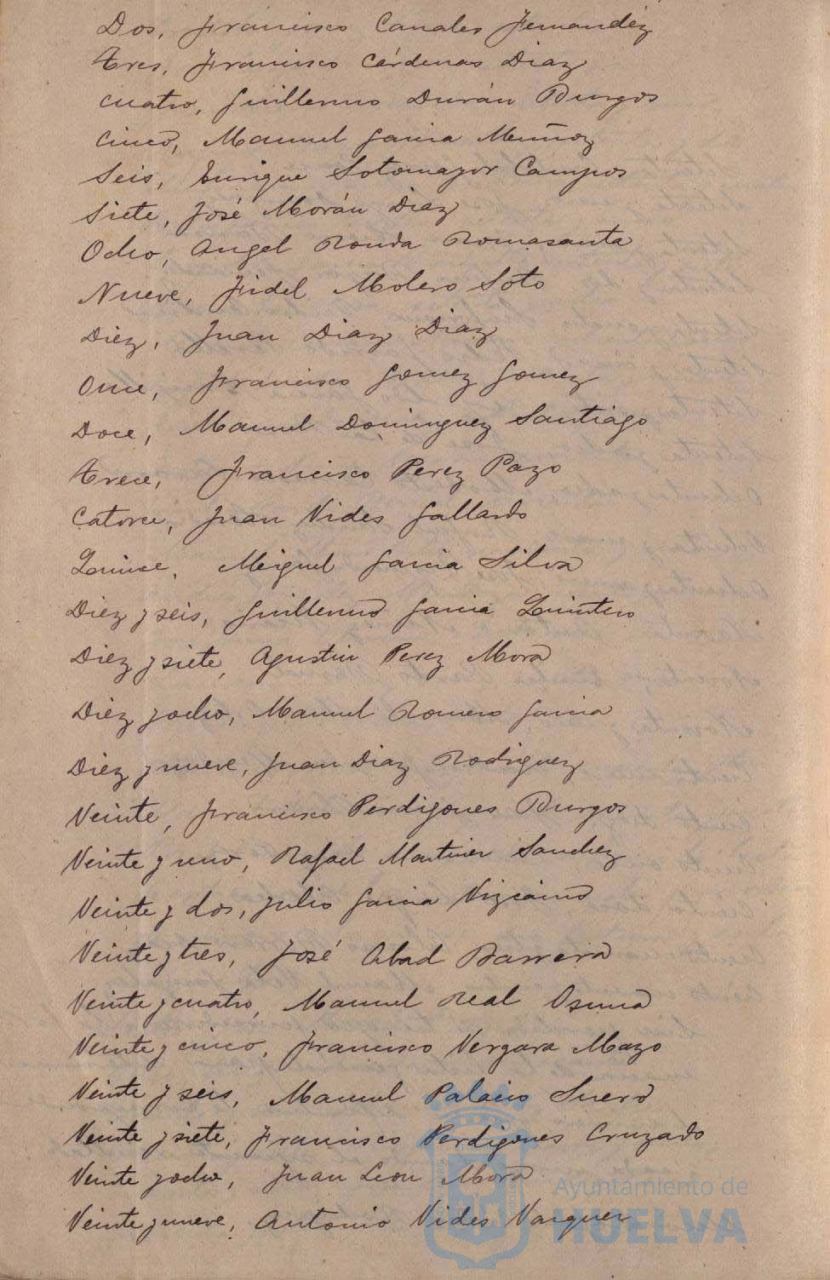 Dos, Francisco Canales Fernandéz
Tres, Francisco Cárdenas Diaz
Cuatro, Guillermo Durán Burgos
Cinco, Manuel Garcia Muñoz
Seis, Enrique Sotomayor Campos
Siete, José Morán Diaz
Ocho, Angel Ronda Romasanta
Nueve, Fidel Molero Soto
Diez, Juan Diaz Diaz
Once, Francisco Gomez Gomez
Doce, Manuel Dominguez Santiago
Trece, Francisco Perez Pazo
Catorce, Juan Vides Gallardo
Quince, Miguel Garcia Silva
Diez y seis, Guillermo Garcia Quintero
Diez y siete, Agustin Perez Mora
Diez y ocho, Manuel Romero Garcia
Diez y nueve, Juan Diaz Rodriguez
Veinte, Francisco Perdigones Burgos
Veinte y uno, Rafael Martinez Sanchez
Veinte y dos, Julio Garcia Vizcaino
Veinte y tres, José Abad Barrera
Veinte y cuatro, Manuel Real Osuna
Veinte y cinco, Francisco Vergara Mazo
Veinte y seis, Manuel Palacio Suero
Veinte y siete, Francisco Perdigones Cruzado
Veinte y ocho, Juan Leon Mora
Veinte y nueve, Antonio Vides Vazquez
Ayuntamiento de
HUELVA